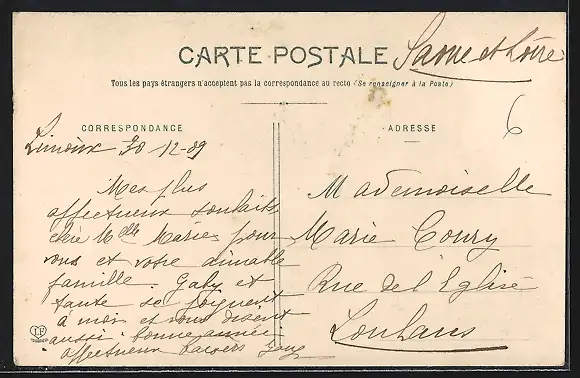 CARTE POSTALE
Saone et Loire
Tous les pays étrangers n'acceptent pas la correspondance au recto (Se renseigner à la Poste)
CORRESPONDANCE
Limoux 30 12-09
Mes plus
affectueux souhaits
chère Mlle Marie pour
vous et votre aimable
famille. Gaby et
tante se joignent
à moi et vous disent
aussi bonne année
affectueux baisers
ADRESSE
6
Mademoiselle
Marie Coury
Rue de l'Eglise
Louhans